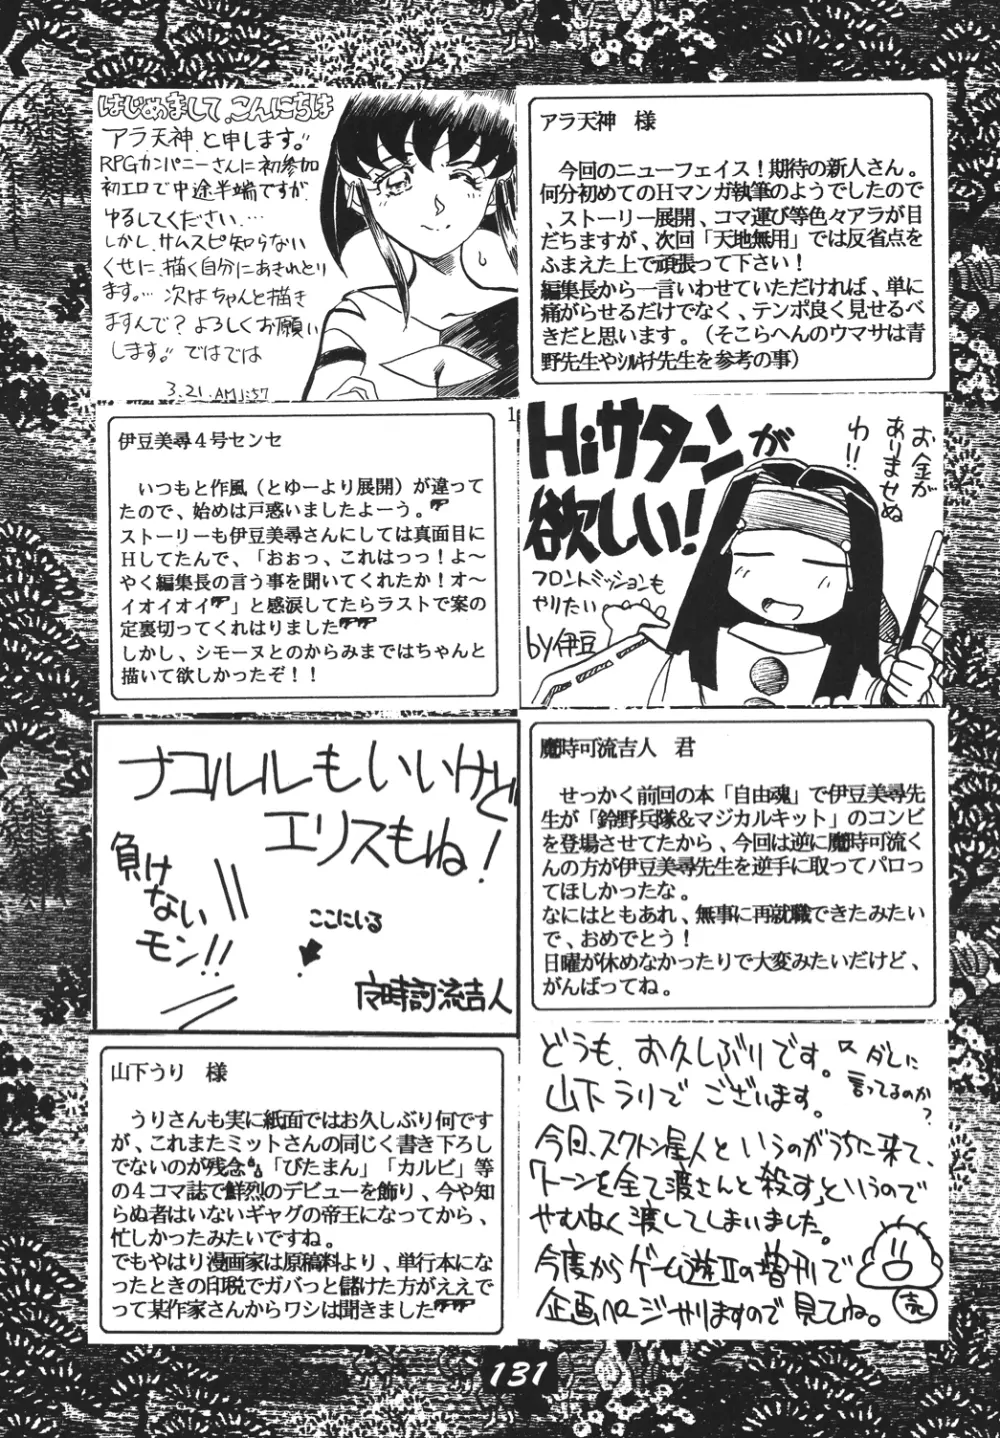 はじめまして、こんにちは
アラ天神と申します!!
RPGカンパニーさんに初参加
初エロで中途半端ですが
ゆるしてください…
しかし、サムスピ知らない
くせに、描く自分にあきれとり
ます…。次はちゃんと描き
ますんで?よろしくお願い
します!!ではでは
3.21.AM1:57
アラ天神 様
今回のニューフェイス!期待の新人さん。
何分初めてのHマンガ執筆のようでしたので
、ストーリー展開、コマ運び等色々アラが目
だちますが、次回「天地無用」では反省点を
ふまえた上で頑張って下さい!
編集長から一言いわせていただければ、単に
痛がらせるだけでなく、テンポ良く見せるべ
きだと思います。(そこらへんのウマサは青
野先生やシルキチ先生を参考の事)
1
伊豆美尋4号センセ
いつもと作風(とゆーより展開)が違って
たので、始めは戸惑いましたよーう。
ストーリーも伊豆美尋さんにしては真面目に
Hしてたんで、「おぉっ、これはっっ!よ〜
やく編集長の言う事を聞いてくれたか!オ〜
イオイオイ」と感涙してたらラストで案の
定裏切ってくれはりました
しかし、シモーヌとのからみまではちゃんと
描いて欲しかったぞ!!
Hiサターンが
欲しい!
お金が
ありませぬ
わ!!
フロントミッションも
やりたい
by伊豆
ナコルルもいいけど
エリスもね!
負け
ない
モン!!
ここにいる
魔時可流吉人 君
せっかく前回の本「自由魂」で伊豆美尋先
生が「鈴野兵隊&マジカルキット」のコンビ
を登場させてたから、今回は逆に魔時可流く
んの方が伊豆美尋先生を逆手に取ってパロっ
てほしかったな。
なにはともあれ、無事に再就職できたみたい
で、おめでとう!
日曜が休めなかったりで大変みたいだけど、
がんばってね。
山下うり 様
うりさんも実に紙面ではお久しぶり何です
が、これまたミットさんの同じく書き下ろし
でないのが残念「ぴたまん」「カルビ」等
の4コマ誌で鮮烈のデビューを飾り、今や知
らぬ者はいないギャグの帝王になってから、
忙しかったみたいですね。
でもやはり漫画家は原稿料より、単行本にな
ったときの印税でガバっと儲けた方がええで
って某作家さんからワシは聞きました
どうも、お久しぶりです。
山下うりでございます。
ダレに
言ってるのか?
今回、スクトン星人というのがうちに来て、
「トーンを全て渡さんと殺す」というので
やむなく渡してしまいました。
今度からゲーム遊IIの増刊で
企画ページやりますので見てね。
売
131